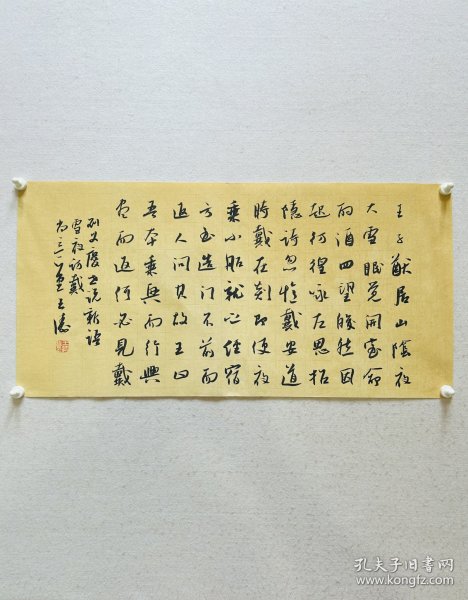 王子猷居山陰夜
大雪眠覺開室命
酒四望皎然因
起彷徨詠左思招
隱詩忽憶戴安道
時戴在剡即便夜
乘小船就之經宿
方至造門不前而
返人問其故王曰
吾本乘興而行興
盡而返何必見戴
刘义慶世說新語
雪夜訪戴
孔夫子旧书网
www.kongfz.com